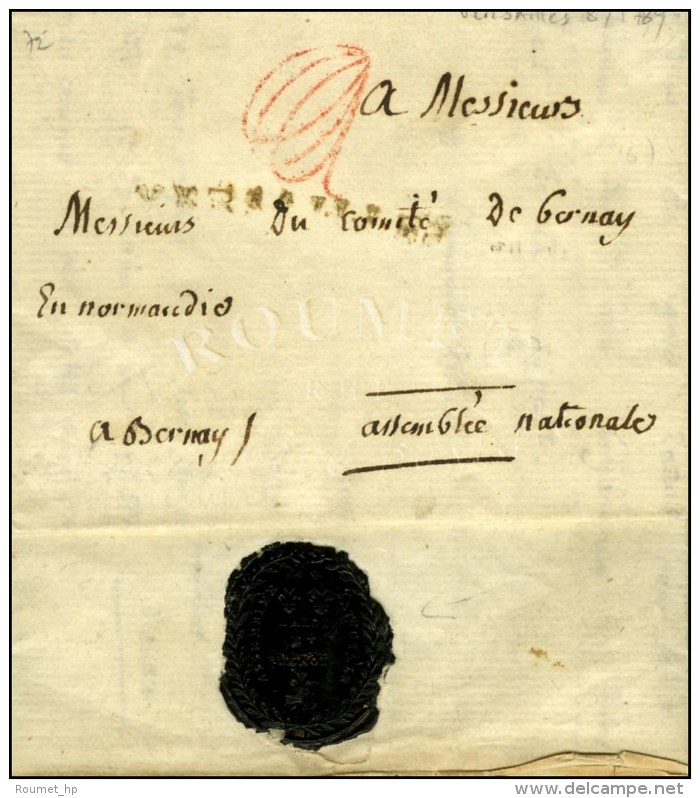 72
VERSAILLES 8/1789
a Messieurs
VERSAILLES
Messieurs Du comité De bernay
En normandie
ROUMET
a Bernay / assemblée nationale
Roumet_hp
www.delcampe.net